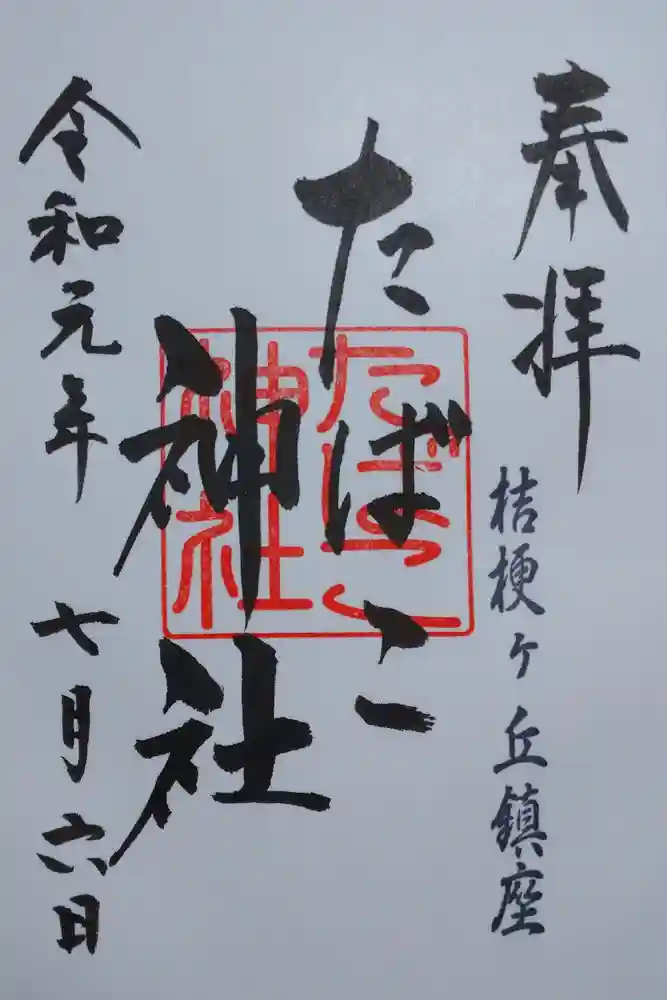 奉拝
桔梗ヶ丘鎮座
たばこ
神社
たばこ
神社
令和元年
七月六日